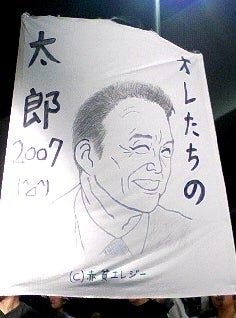 オレたちの
太郎
2007
(^Д^)
(C)赤貧エレジー